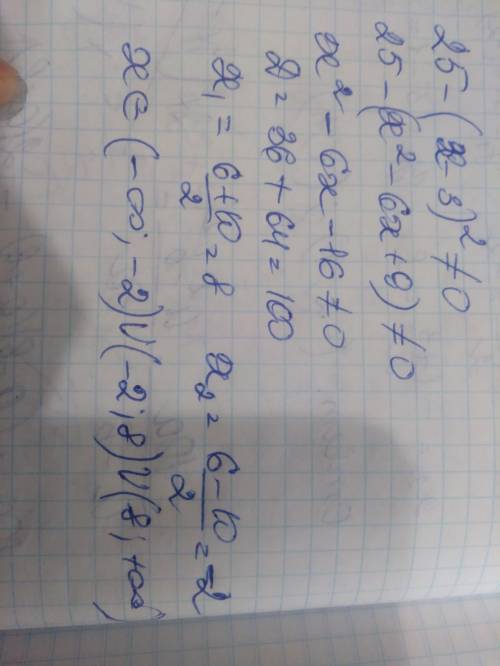 25 - (x-3)² ≠ 0
25 - (x² - 6x + 9) ≠ 0
x² - 6x - 16 ≠ 0
D = 36 + 64 = 100
x₁ = (6+10)/2 = 8 x₂ = (6-10)/2 = -2
x ∈ (-∞; -2) ∪ (-2; 8) ∪ (8; +∞)